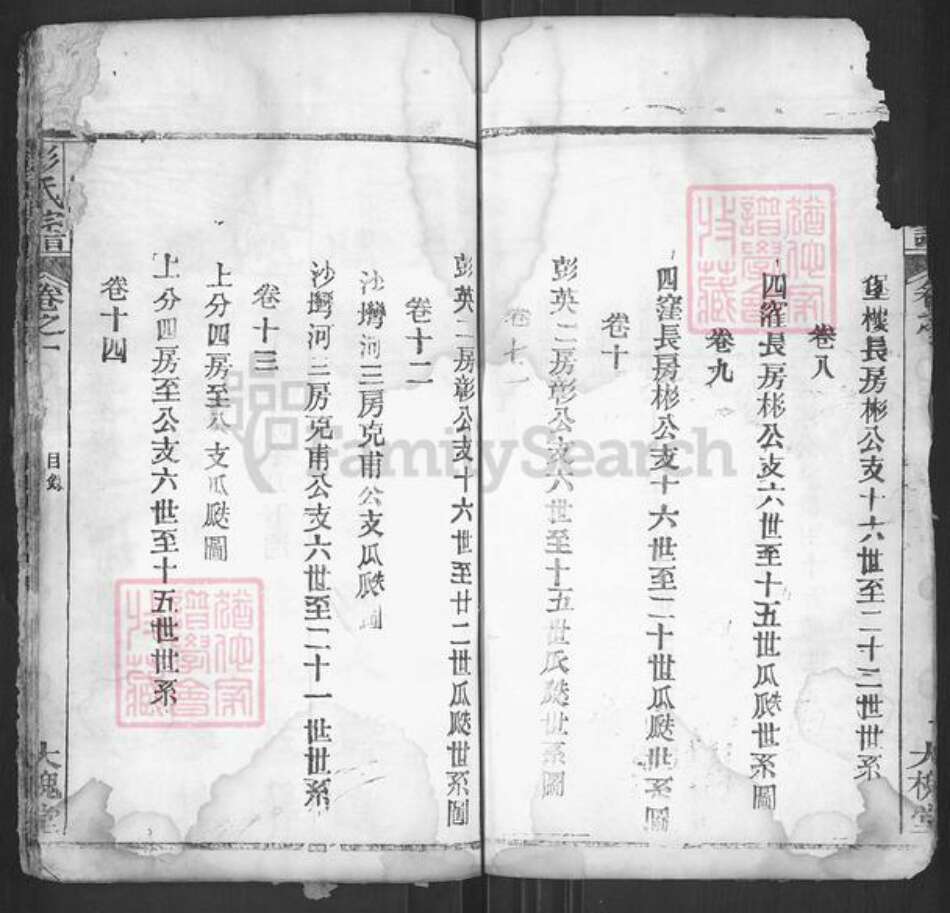 𠋫樓長房彬公支十六世至二十二世世系
卷八
四窪長房彬公支六世至十五世瓜瓞世系圖
卷九
四窪長房彬公支十六世至二十世瓜瓞世系圖
卷十
彭英二房彰公支六世至十五世瓜瓞世系圖
卷十一
彭英二房彰公支十六世至廿二世瓜瓞世系圖
卷十二
沙灣河三房克甫公支瓜瓞圖
沙灣河三房克甫公支六世至二十一世世系
卷十三
上分四房至公支瓜瓞圖
上分四房至公支六世至十五世世系
卷十四
彭氏宗譜
卷之一
目錄
大槐堂
大槐堂
FamilySearch